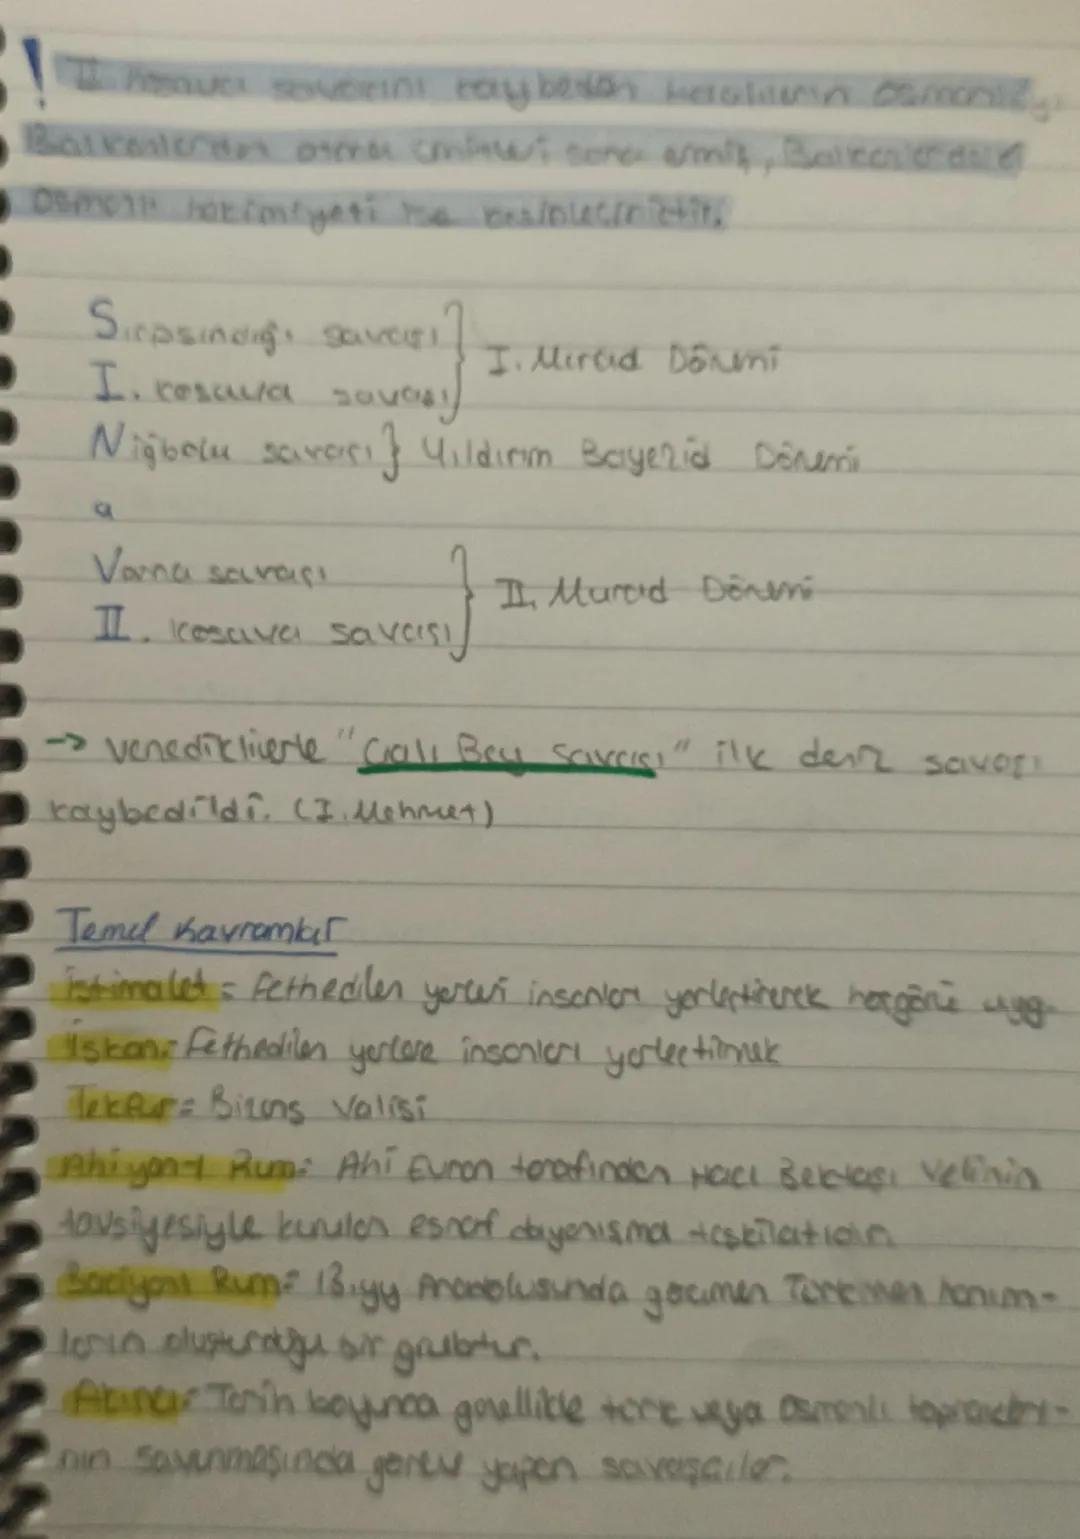 ! II. Kosova savaşını kaybeden Haçlıların Osmanlıyı
Balkanlardan atma ümitleri sona ermiş, Balkanlardaki
Osmanlı hakimiyeti ise kesinleşmiştir.
Sırpsındığı savaşı
I. Kosova savaşı } I. Murad Dönemi
Niğbolu savaşı } Yıldırım Bayezid Dönemi
a
Varna savaşı
II. Kosova savaşı } II. Murad Dönemi
→ Venediklilerle "Çalı Bey Savaşı" ilk deniz savaşı
kaybedildi. (I. Mehmet)
Temel Kavramlar
İstimalet = Fethedilen yerleri insanları yerleştirerek hoşgörü uyg.
İskan = Fethedilen yerlere insanları yerleştirmek
Tekfur = Bizans Valisi
Ahiyan-ı Rum = Ahi Evran tarafından Hacı Bektaşı Velinin
tavsiyesiyle kurulan esnaf dayanışma teşkilatıdır.
Baciyanı Rum = 13.yy Anadolusunda göçmen Türkmen hanım-
ların oluşturduğu bir gruptur.
Akıncı = Tarih boyunca genellikle türk veya Osmanlı toprakları-
nın savunmasında görev yapan savaşçılar.